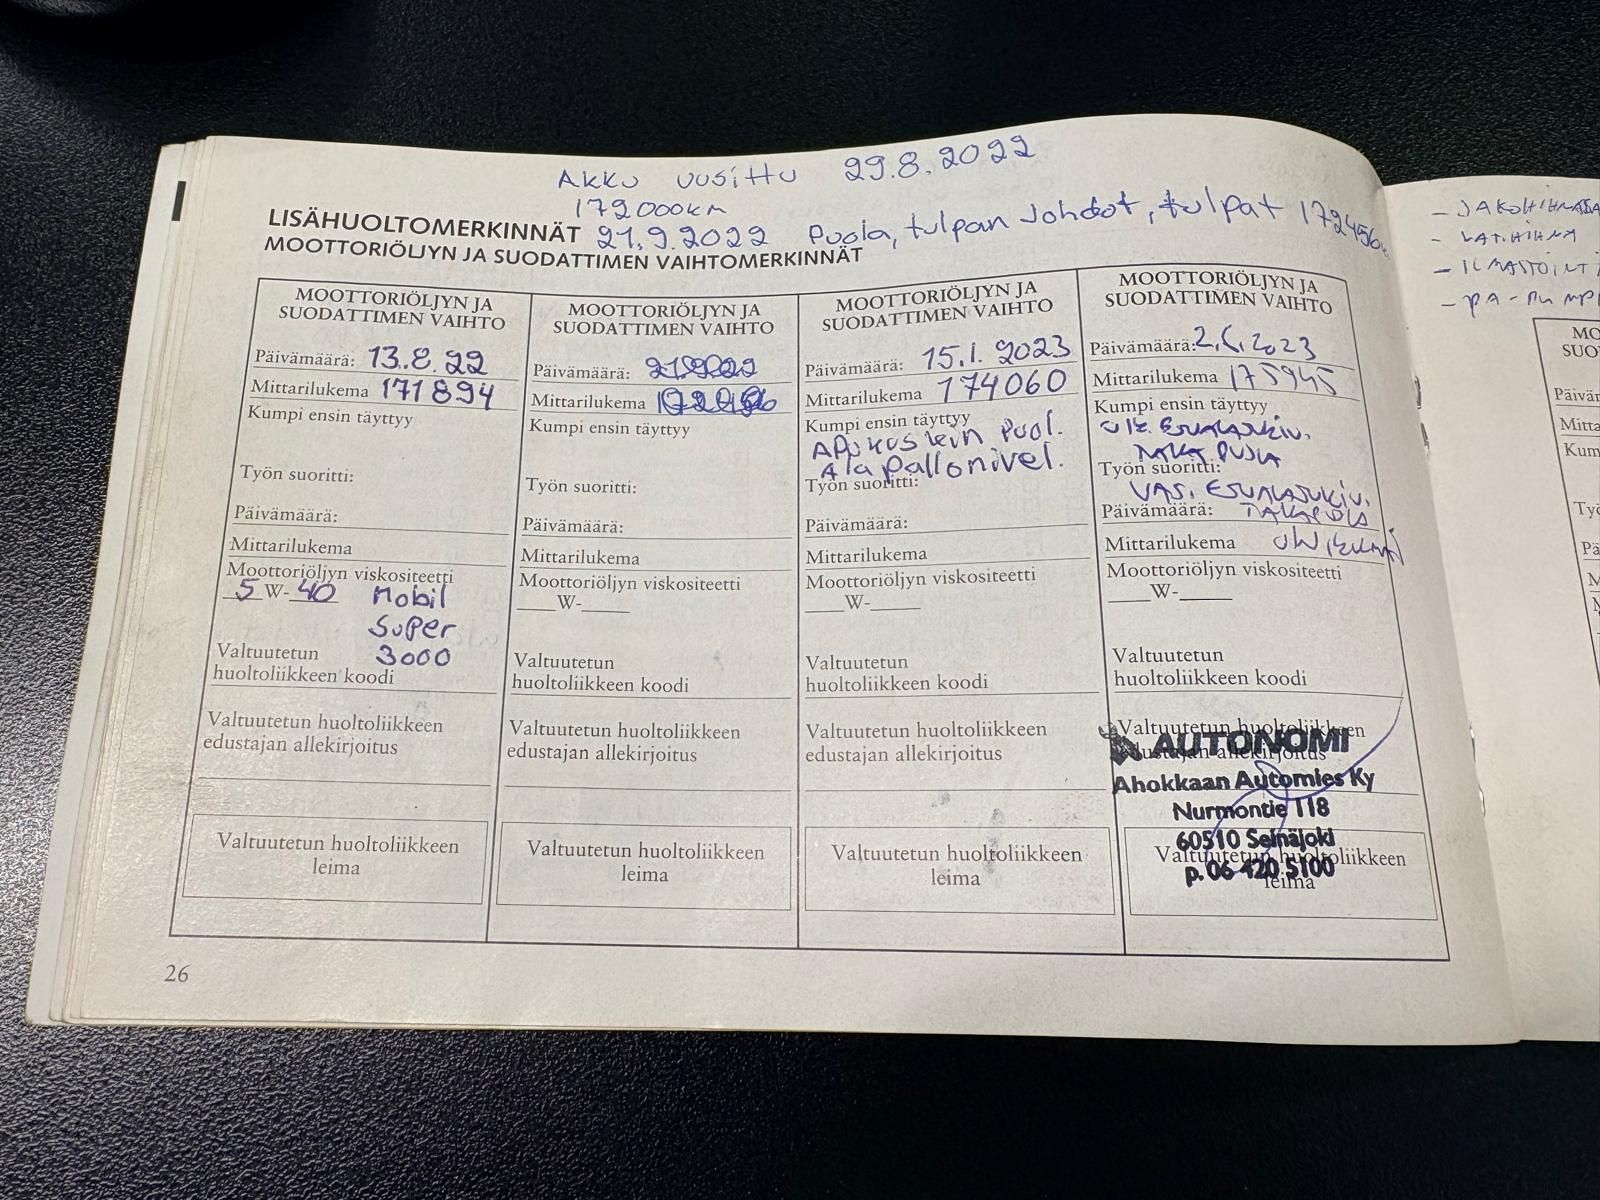 AKKU UUSITTU 29.8.2022
172000KM
LISÄHUOLTOMERKINNÄT 21.9.2022 Puola, tulpan Johdot, tulpat 172456
MOOTTORIÖLJYN JA SUODATTIMEN VAIHTOMERKINNÄT
MOOTTORIÖLJYN JA
SUODATTIMEN VAIHTO
Päivämäärä: 13.8.22
Mittarilukema 171894
Kumpi ensin täyttyy
Työn suoritti:
Päivämäärä:
Mittarilukema
Moottoriöljyn viskositeetti
5 W-40 Mobil
Super
3000
Valtuutetun
huoltoliikkeen koodi
Valtuutetun huoltoliikkeen
edustajan allekirjoitus
Valtuutetun huoltoliikkeen
leima
MOOTTORIÖLJYN JA
SUODATTIMEN VAIHTO
Päivämäärä:
Mittarilukema
Kumpi ensin täyttyy
Työn suoritti:
Päivämäärä:
Mittarilukema
Moottoriöljyn viskositeetti
___W-_____
Valtuutetun
huoltoliikkeen koodi
Valtuutetun huoltoliikkeen
edustajan allekirjoitus
Valtuutetun huoltoliikkeen
leima
MOOTTORIÖLJYN JA
SUODATTIMEN VAIHTO
Päivämäärä: 15.1.2023
Mittarilukema 174060
Kumpi ensin täyttyy
Puol.
Ala pallonivel.
Työn suoritti:
Päivämäärä:
Mittarilukema
Moottoriöljyn viskositeetti
___W-_____
Valtuutetun
huoltoliikkeen koodi
Valtuutetun huoltoliikkeen
edustajan allekirjoitus
Valtuutetun huoltoliikkeen
leima
MOOTTORIÖLJYN JA
SUODATTIMEN VAIHTO
Päivämäärä: 2.6.2023
Mittarilukema 175945
Kumpi ensin täyttyy
Työn suoritti:
VAS.
Päivämäärä:
Mittarilukema
Moottoriöljyn viskositeetti
___W-_____
Valtuutetun
huoltoliikkeen koodi
Valtuutetun huoltoliikkeen
edustajan allekirjoitus
AUTONOMI
Ahokkaan Automies Ky
Nurmontie 118
60510 Seinäjoki
p. 06 420 5100
Valtuutetun huoltoliikkeen
leima
26
- JAKOHIHNA
- LAT.HIHNA
- ILMASTOINTI
MO
SUO
Päivä
Mitta
Kum
Työ
Pä
M